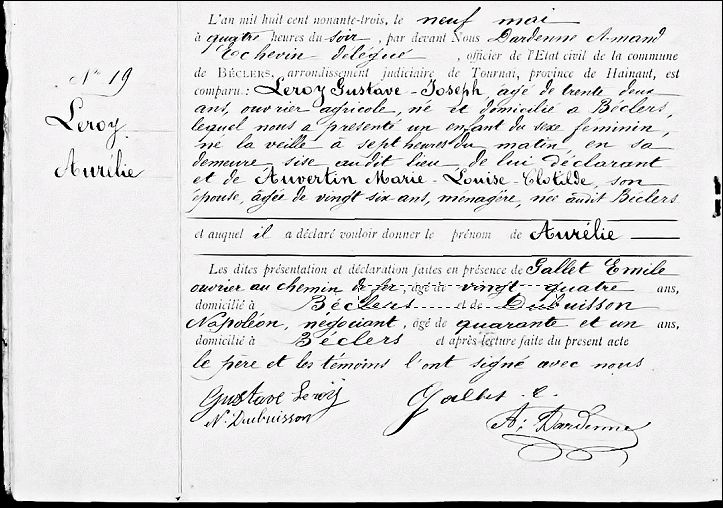 Nº 19
Leroy
Aurélie
L'an mil huit cent nonante-trois, le neuf mai
à quatre heures du soir, par devant Nous Dardenne Armand
Echevin délégué, officier de l'Etat civil de la commune
de BÉCLERS, arrondissement judiciaire de Tournai, province de Hainaut, est
comparu : Leroy Gustave-Joseph, âgé de trente deux
ans, ouvrier agricole, né et domicilié à Béclers,
lequel nous a présenté un enfant du sexe féminin,
né la veille à sept heures du matin en sa
demeure sise audit lieu, de lui déclarant
et de Auvertin Marie-Louise-Clotilde, son
épouse, âgée de vingt six ans, ménagère, née audit Béclers
et auquel il a déclaré vouloir donner le prénom de Aurélie
Les dites présentation et déclaration faites en présence de Gallet Emile
ouvrier au chemin de fer, âgé de vingt quatre ans,
domicilié à Béclers et de Dubuisson
Napoléon, négociant, âgé de quarante et un ans,
domicilié à Béclers et après lecture faite du présent acte
le père et les témoins l'ont signé avec nous
Gustave Leroy Gallet E.
N. Dubuisson A. Dardenne